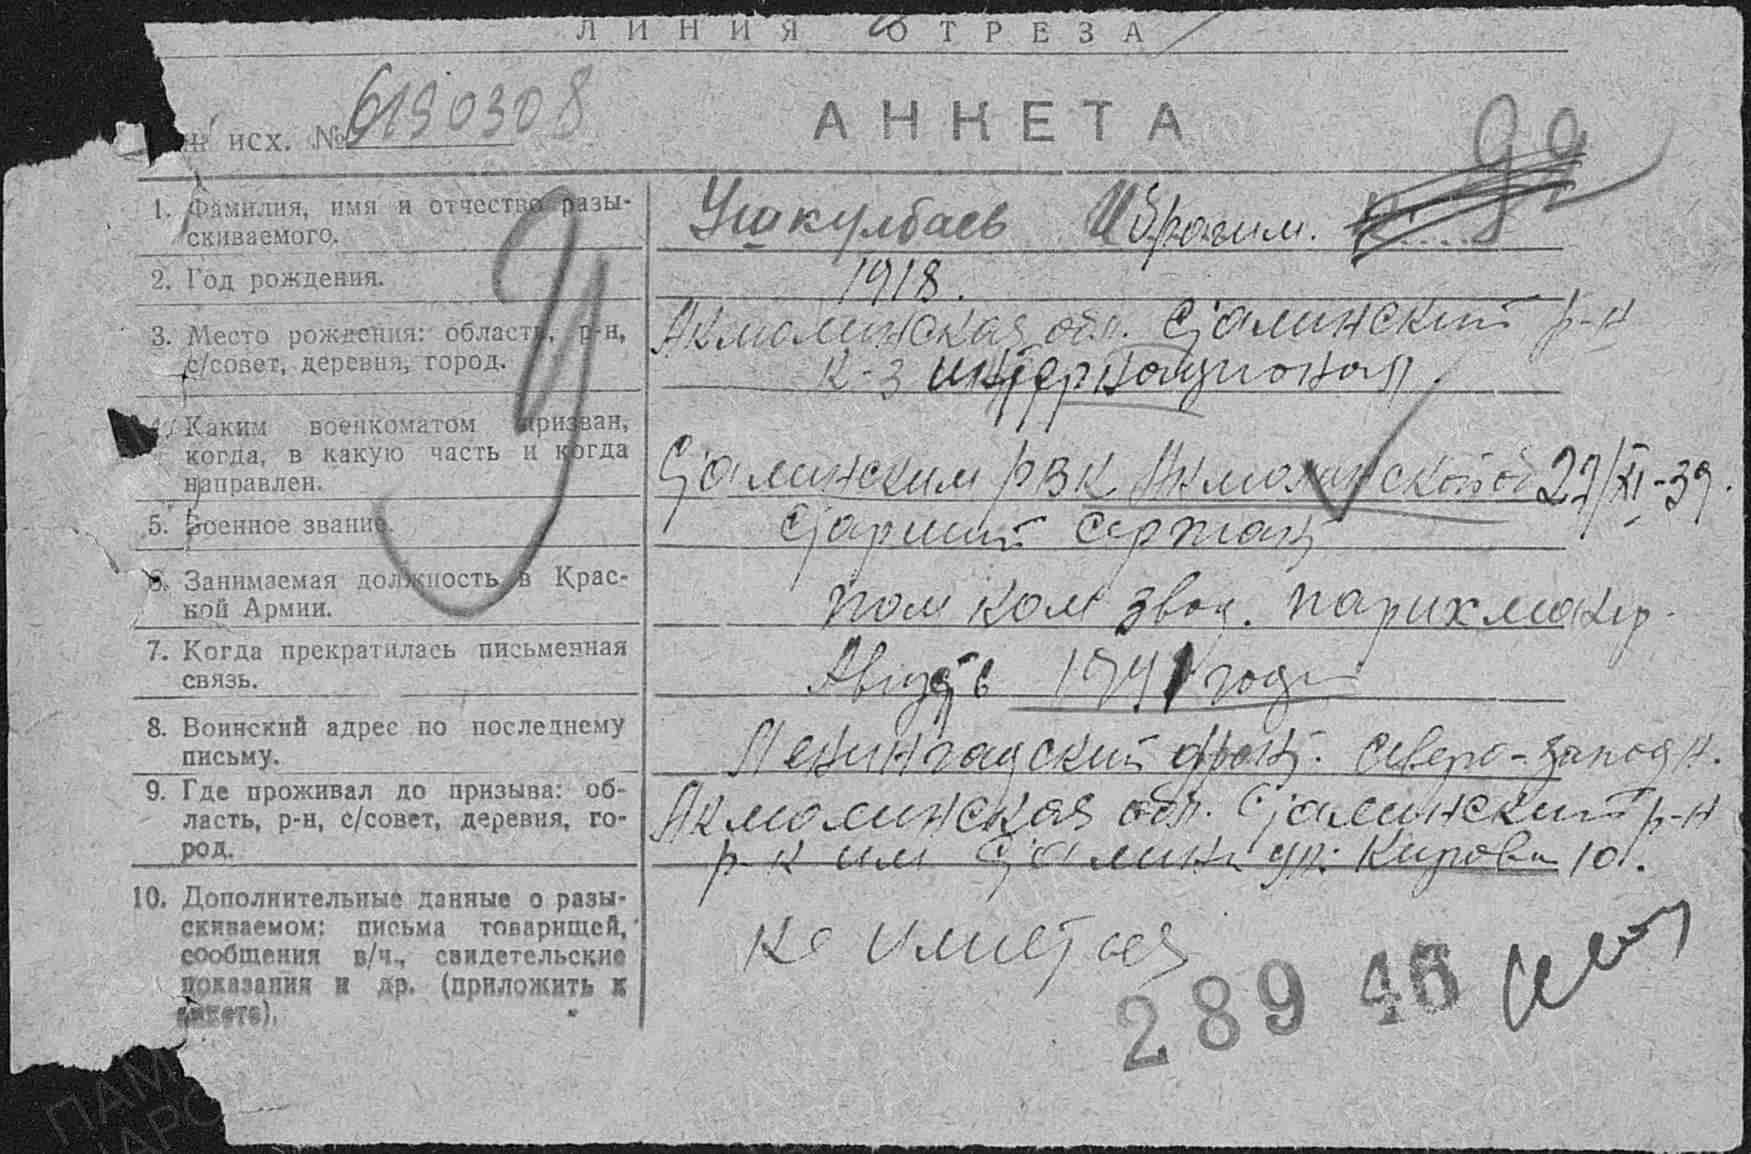 ЛИНИЯ ОТРЕЗА
исх. № 6190308
АНКЕТА
99
1. Фамилия, имя и отчество разы-
скиваемого.
Ушкулбаев Ибрагим.
2. Год рождения.
1918.
3. Место рождения: область, р-н,
с/совет, деревня, город.
Акмолинская обл. Сталинский р-н
к-з интернационал
4. Каким военкоматом призван,
когда, в какую часть и когда
направлен.
Сталинским РВК Акмолинской об 27/XI-39.
5. Военное звание.
Старший сержант
6. Занимаемая должность в Крас-
ной Армии.
пом ком звод. парихмахер
7. Когда прекратилась письменная
связь.
Август 1941 года
8. Воинский адрес по последнему
письму.
Ленинградский фронт. северо-западн.
9. Где проживал до призыва: об-
ласть, р-н, с/совет, деревня, го-
род.
Акмолинская обл. Сталинский р-н
р-к им Сталина ул. Кирова 10.
10. Дополнительные данные о разы-
скиваемом: письма товарищей,
сообщения в/ч., свидетельские
показания и др. (приложить к
анкете).
не имеется
289 46
У